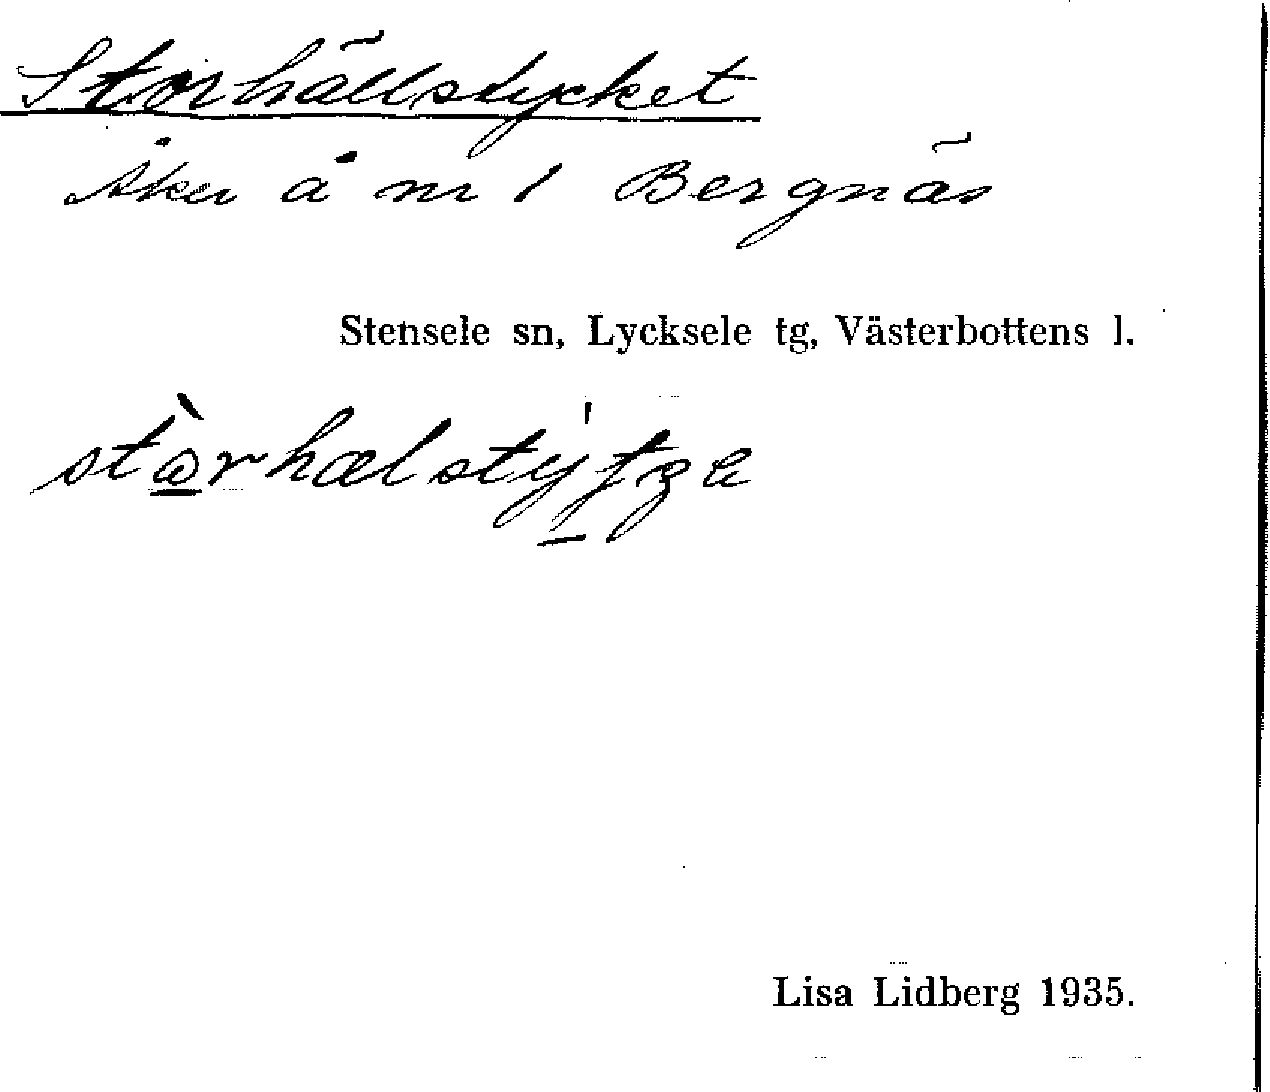 Storhällstycket
Åker å nr 1 Bergnäs
Stensele sn, Lycksele tg, Västerbottens l.
Lisa Lidberg 1935.